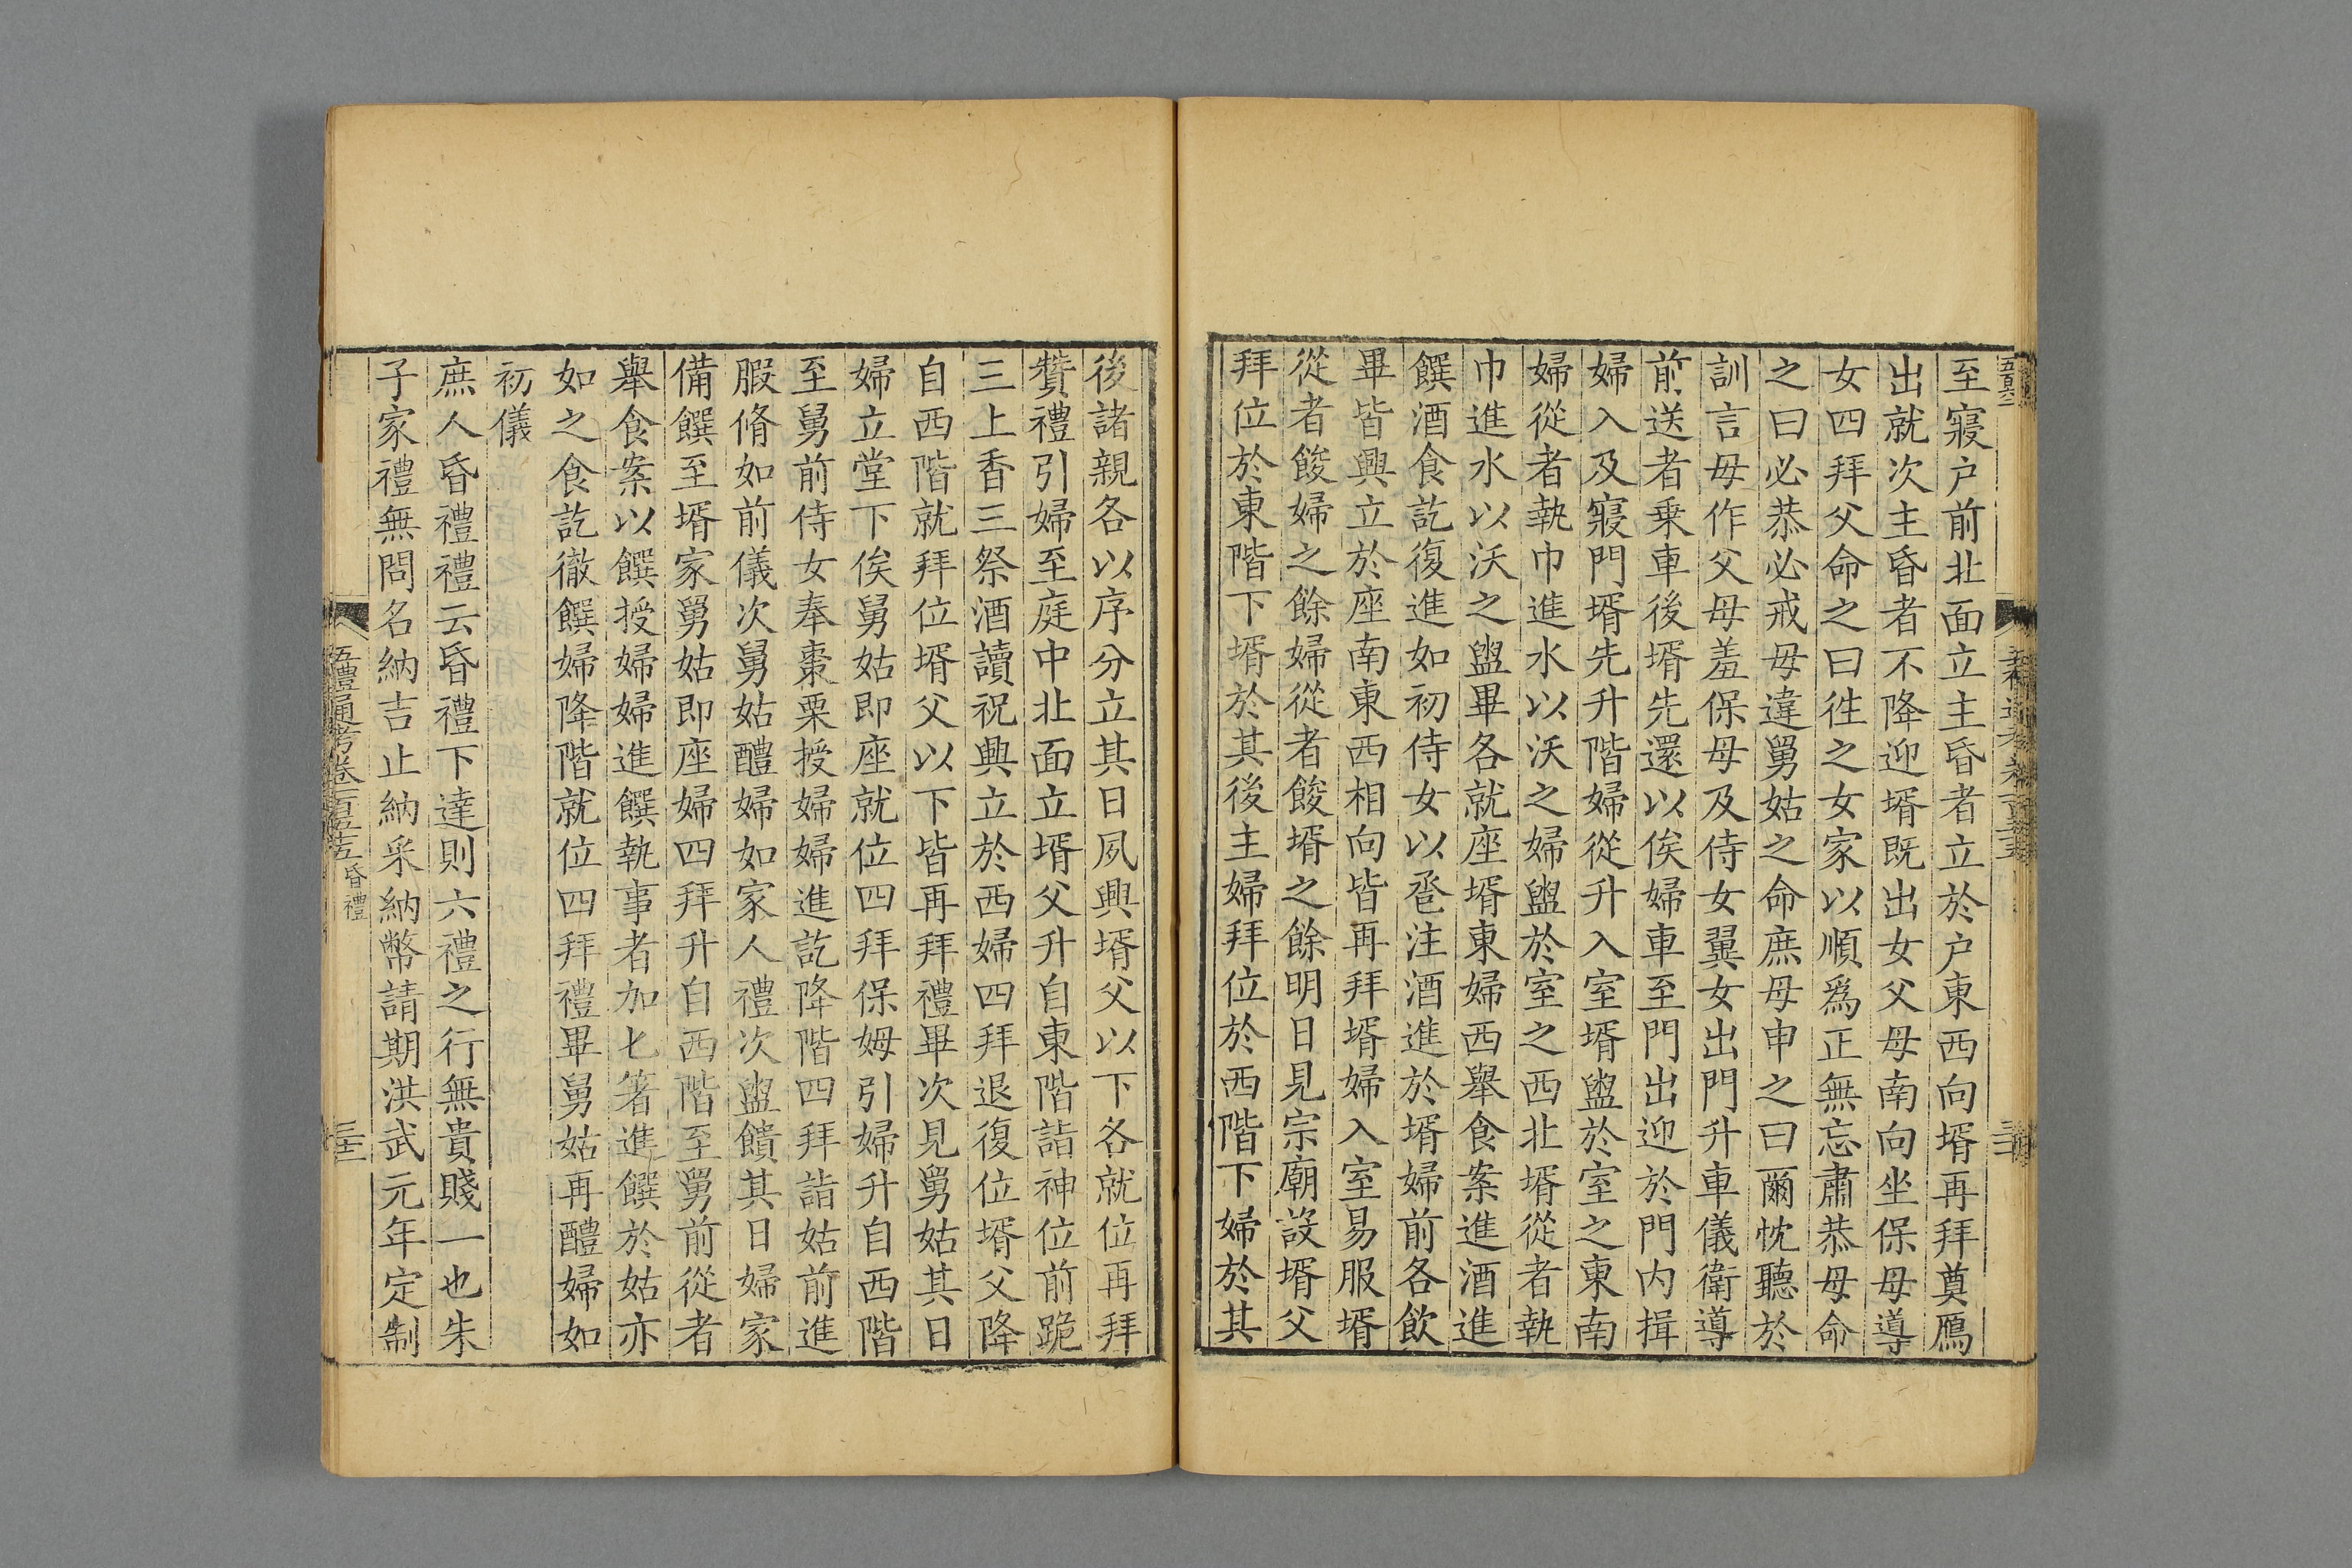 至寢户前北面立主昏者立於户東西向壻再拜奠鴈
出就次主昏者不降迎壻既出女父母南向坐保母導
女四拜父命之曰徃之女家以順爲正無忘肅恭母命
之曰必恭必戒毋違舅姑之命庶母申之曰爾忱聽於
訓言毋作父母羞保母及侍女翼女出門升車儀衛導
前送者乗車後壻先還以俟婦車至門出迎於門内揖
婦入及寢門壻先升階婦從升入室壻盥於室之東南
婦從者執巾進水以沃之婦盥於室之西北壻從者執
巾進水以沃之盥畢各就座壻東婦西舉食案進酒進
饌酒食訖復進如初侍女以卺注酒進於壻婦前各飲
畢皆興立於座南東西相向皆再拜壻婦入室易服壻
從者餕婦之餘婦從者餕壻之餘明日見宗廟設壻父
拜位於東階下壻於其後主婦拜位於西階下婦於其
後諸親各以序分立其日夙興壻父以下各就位再拜
贊禮引婦至庭中北面立壻父升自東階詣神位前跪
三上香三祭酒讀祝興立於西婦四拜退復位壻父降
自西階就拜位壻父以下皆再拜禮畢次見舅姑其日
婦立堂下俟舅姑即座就位四拜保姆引婦升自西階
至舅前侍女奉棗栗授婦婦進訖降階四拜詣姑前進
腶脩如前儀次舅姑醴婦如家人禮次盥饋其日婦家
備饌至壻家舅姑即座婦四拜升自西階至舅前從者
舉食案以饌授婦婦進饌執事者加匕箸進饌於姑亦
如之食訖徹饌婦降階就位四拜禮畢舅姑再醴婦如
初儀
庶人昏禮禮云昏禮下達則六禮之行無貴賤一也朱
子家禮無問名納吉止納采納幣請期洪武元年定制
五禮通考卷一百五十五昏禮